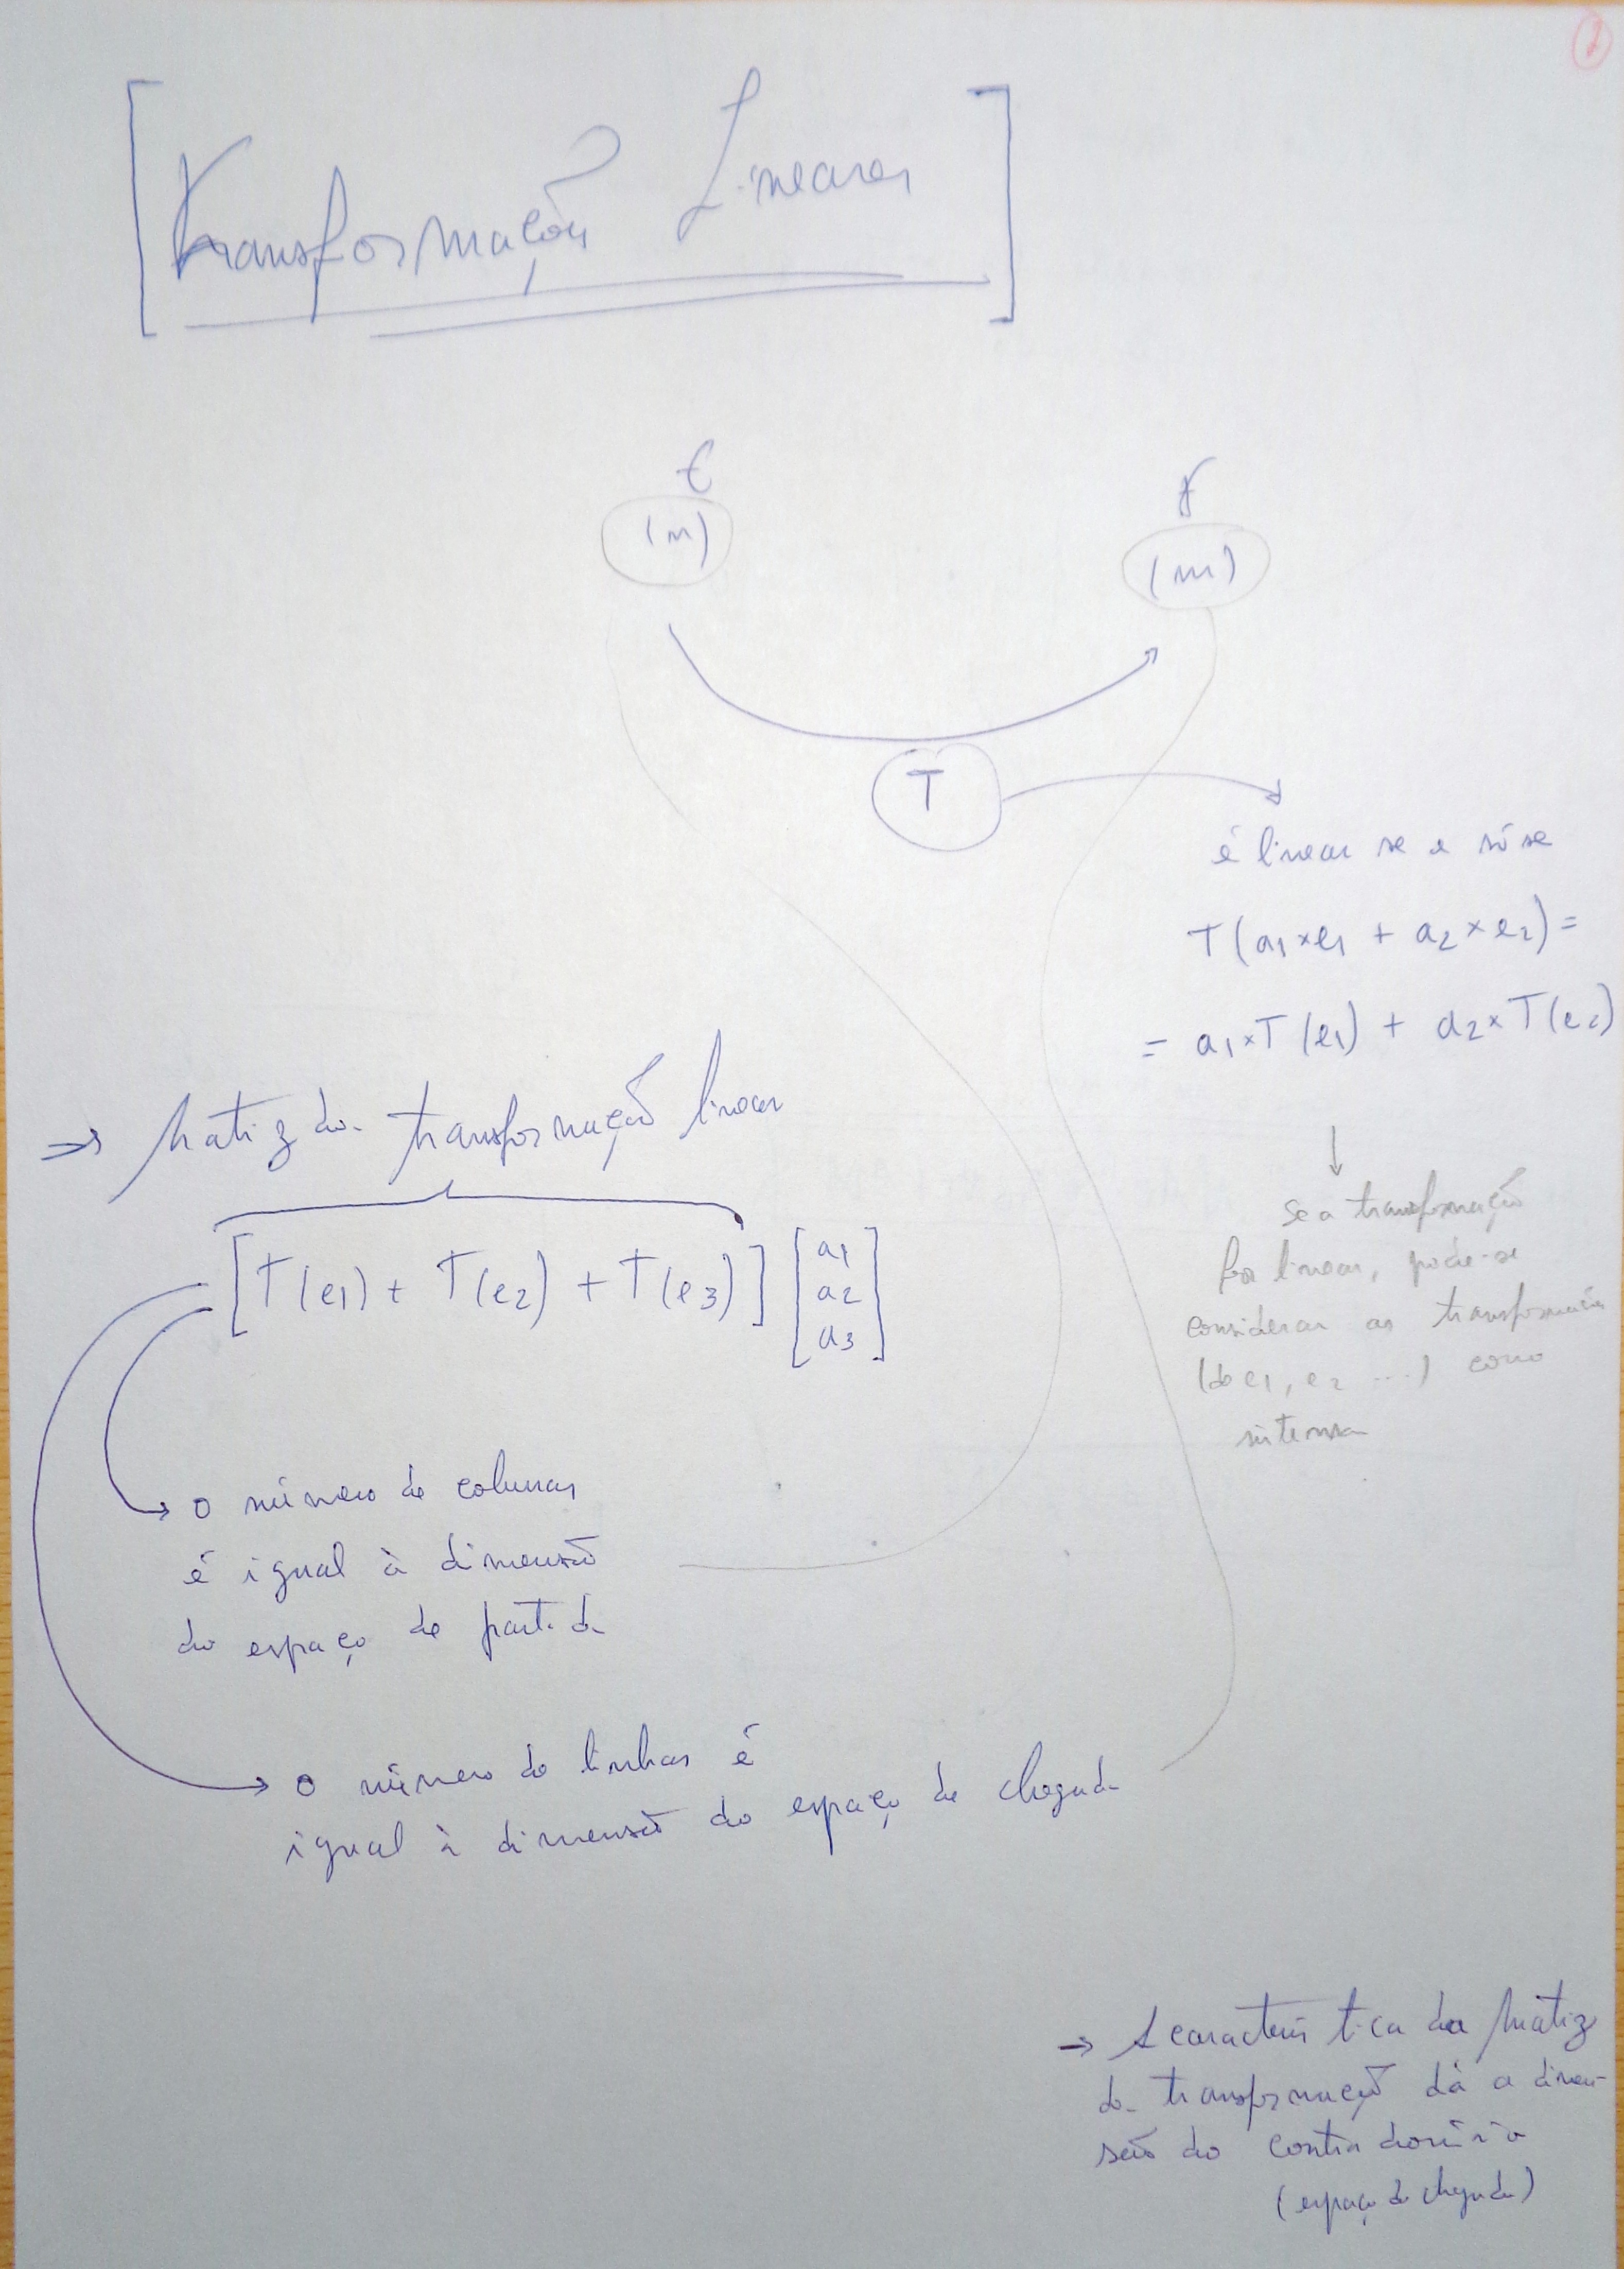 Transformações Lineares
E
(n)
F
(m)
T
é linear se e só se
T(a1×e1 + a2×e2) =
= a1×T(e1) + a2×T(e2)
↓
se a transformação
for linear, pode-se
considerar as transformações
(de e1, e2 ...) como
sistema
⇒ Matriz da transformação linear
[T(e1) + T(e2) + T(e3)] [a1
a2
a3]
→ o número de colunas
é igual à dimensão
do espaço de partida
→ o número de linhas é
igual à dimensão do espaço de chegada
→ A característica da Matriz
da transformação dá a dimen-
são do contradomínio
(espaço de chegada)